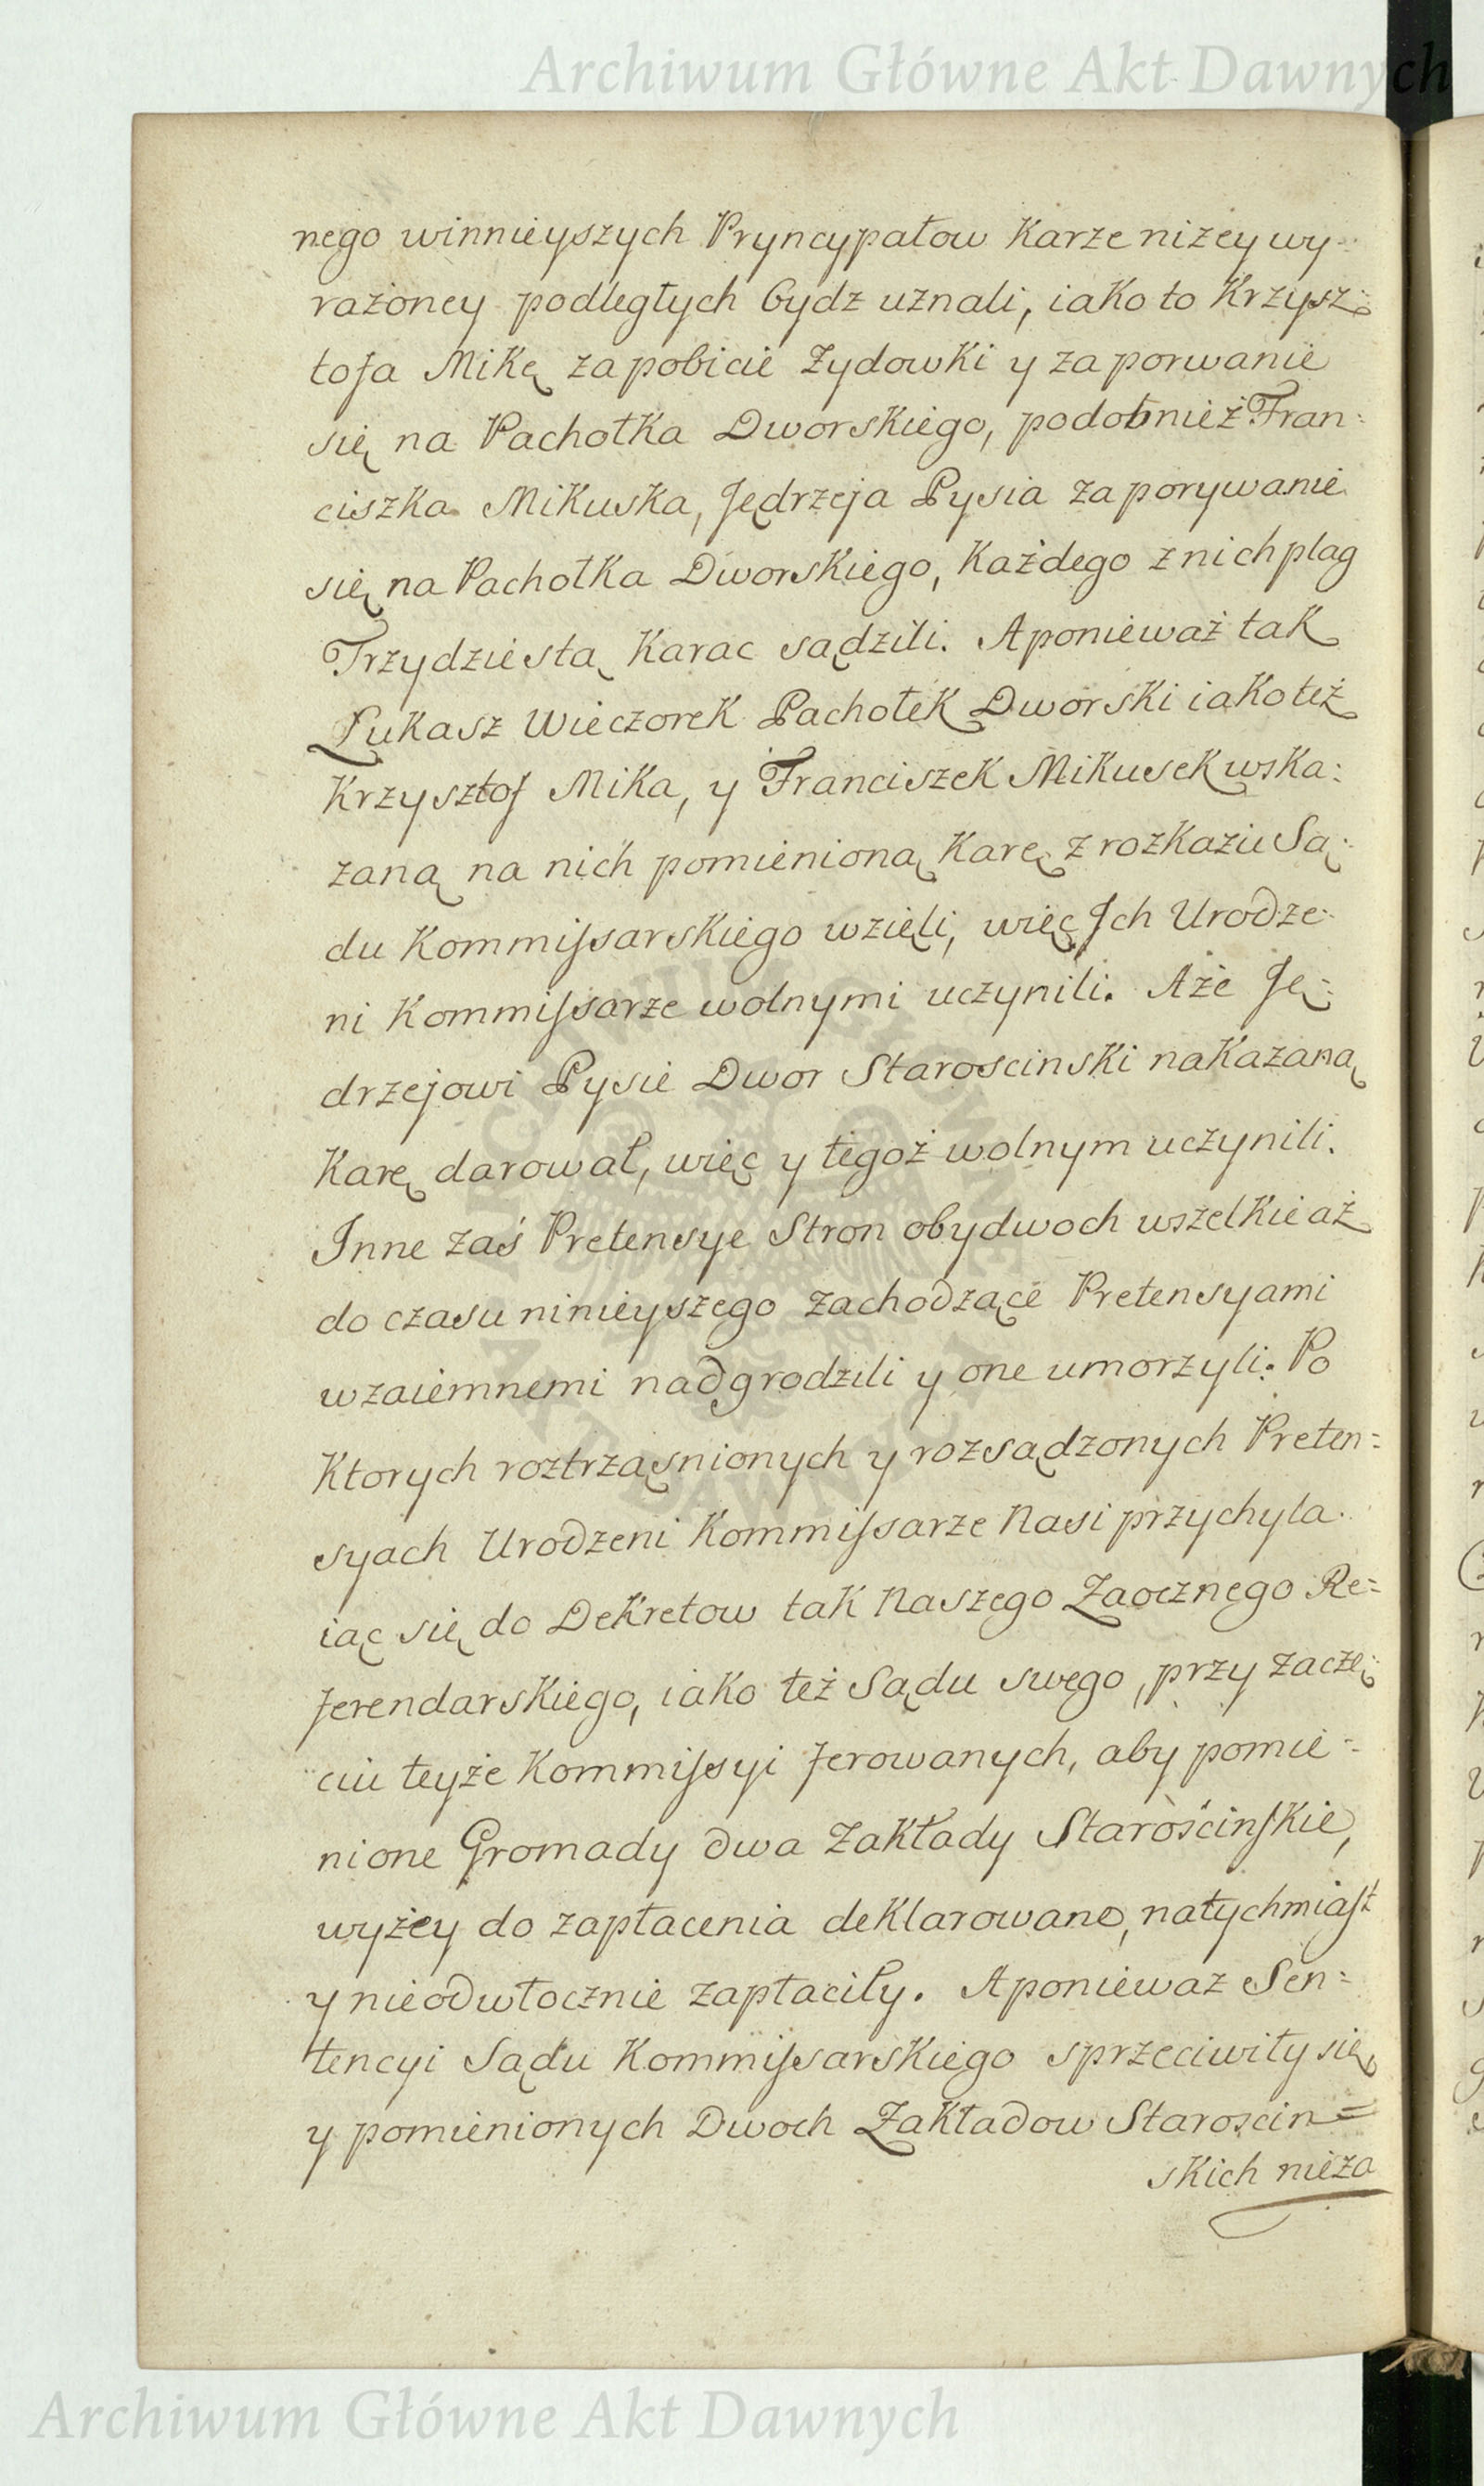 Archiwum Główne Akt Dawnych
nego winnieyszych Pryncypałow Karze niżey wy-
rażoney podległych bydz uznali, iako to Krzysz-
tofa Mikę za pobicie Zydowki y za porwanie
się na Pachołka Dworskiego, podobnież Fran-
ciszka Mikuska, Jędrzeja Pysia za porywanie
się na Pachołka Dworskiego, Każdego z nich plag
Trzydziestą Karac sądzili. A ponieważ tak
Łukasz Wieczorek Pachołek Dworski iako też
Krzysztof Mika, y Franciszek Mikusek wska:
zaną na nich pomienioną Karę z rozkazu Są:
du Kommissarskiego wzięli, więc Ich Urodze-
ni Kommissarze wolnymi uczynili. Aże Ję:
drzejowi Pysie Dwor Staroscinski nakazaną
Karę darował, więc y tegoż wolnym uczynili.
Inne zaś Pretensye Stron obydwoch wszelkie aż
do czasu ninieyszego zachodzące Pretensyami
wzaiemnemi nadgrodzili y one umorzyli. Po
Ktorych roztrząsnionych y rozsądzonych Preten=
syach Urodzeni Kommissarze Nasi przychyla-
iąc się do Dekretow tak Naszego Zaocznego Re=
ferendarskiego, iako też Sądu swego, przy zaczę:
ciu teyże Kommissyi ferowanych, aby pomie=
nione Gromady dwa Zakłady Starościnskie,
wyżey do zapłacenia deklarowane, natychmiast
y nieodwłocznie zapłaciły. A ponieważ Sen=
tencyi Sądu Kommissarskiego sprzeciwiły się
y pomienionych Dwoch Zakładow Staroscin=
skich nieza
Archiwum Główne Akt Dawnych